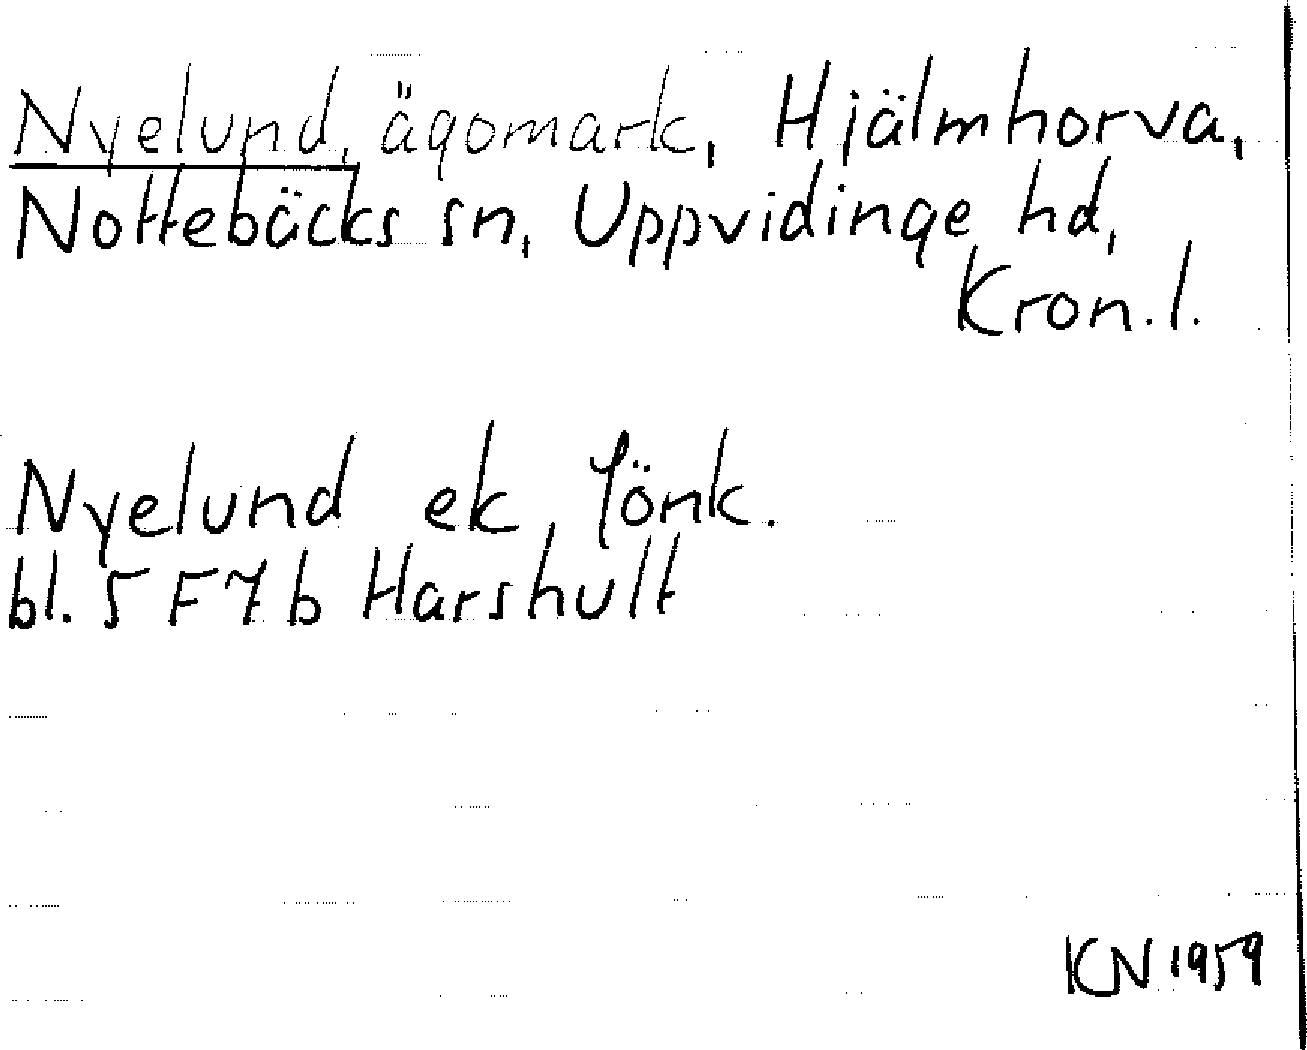 Nyelund, ägomark, Hjälmhorva,
Nottebäcks sn, Uppvidinge hd,
Kron.l.
Nyelund ek Jönk.
bl. 5 F 7 b Harshult
KN 1959